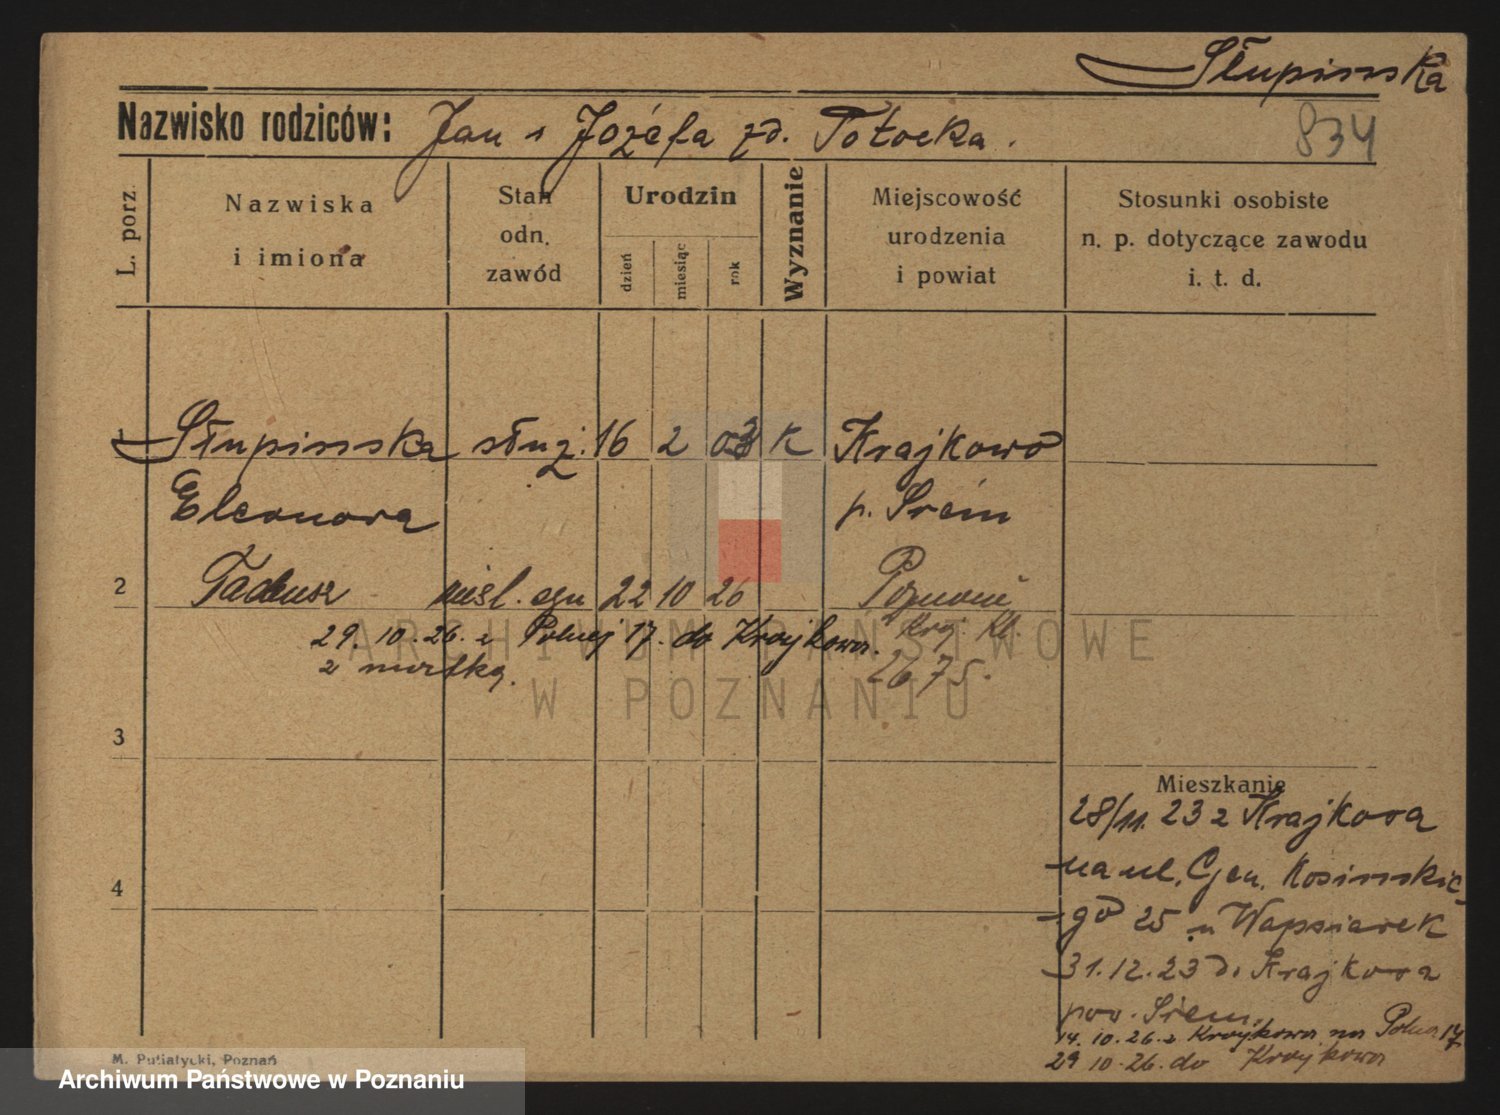 Słupinska
Nazwisko rodziców: Jan i Józefa zd. Potocka.
834
L. porz.
Nazwiska
i imiona
Stan
odn.
zawód
Urodzin
dzień
miesiąc
rok
Wyznanie
Miejscowość
urodzenia
i powiat
Stosunki osobiste
n. p. dotyczące zawodu
i. t. d.
1 Słupinska służ. 16 2 03 K Krajkowo
Eleonora p. Śrem
2 Tadeusz 22 10 26 Poznań
29.10.26. z Polnej 17. do Krajkowa.
z matką. 2675.
3
4
Mieszkanie
28/11. 23 z Krajkowa
na ul. Gen. Kosinskie
-go 25 u Wapniarek
31.12.23 do Krajkowa
pow. Śrem.
14.10.26. z Krajkowa na Polna 17
29 10.26. do Krajkowa
M. Putiatycki, Poznań
ARCHIWUM PAŃSTWOWE
W POZNANIU
Archiwum Państwowe w Poznaniu